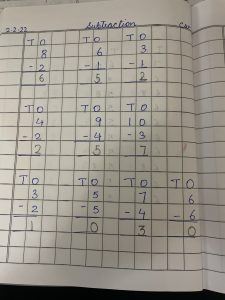 2.2.22 Subtraction
T O T O T O
8 6 3
- 2 - 1 - 1
6 5 2
T O T O T O
4 9 1 0
- 2 - 4 - 3
2 5 7
T O T O T O T O
3 5 7 6
- 2 - 5 - 4 - 6
1 0 3 0